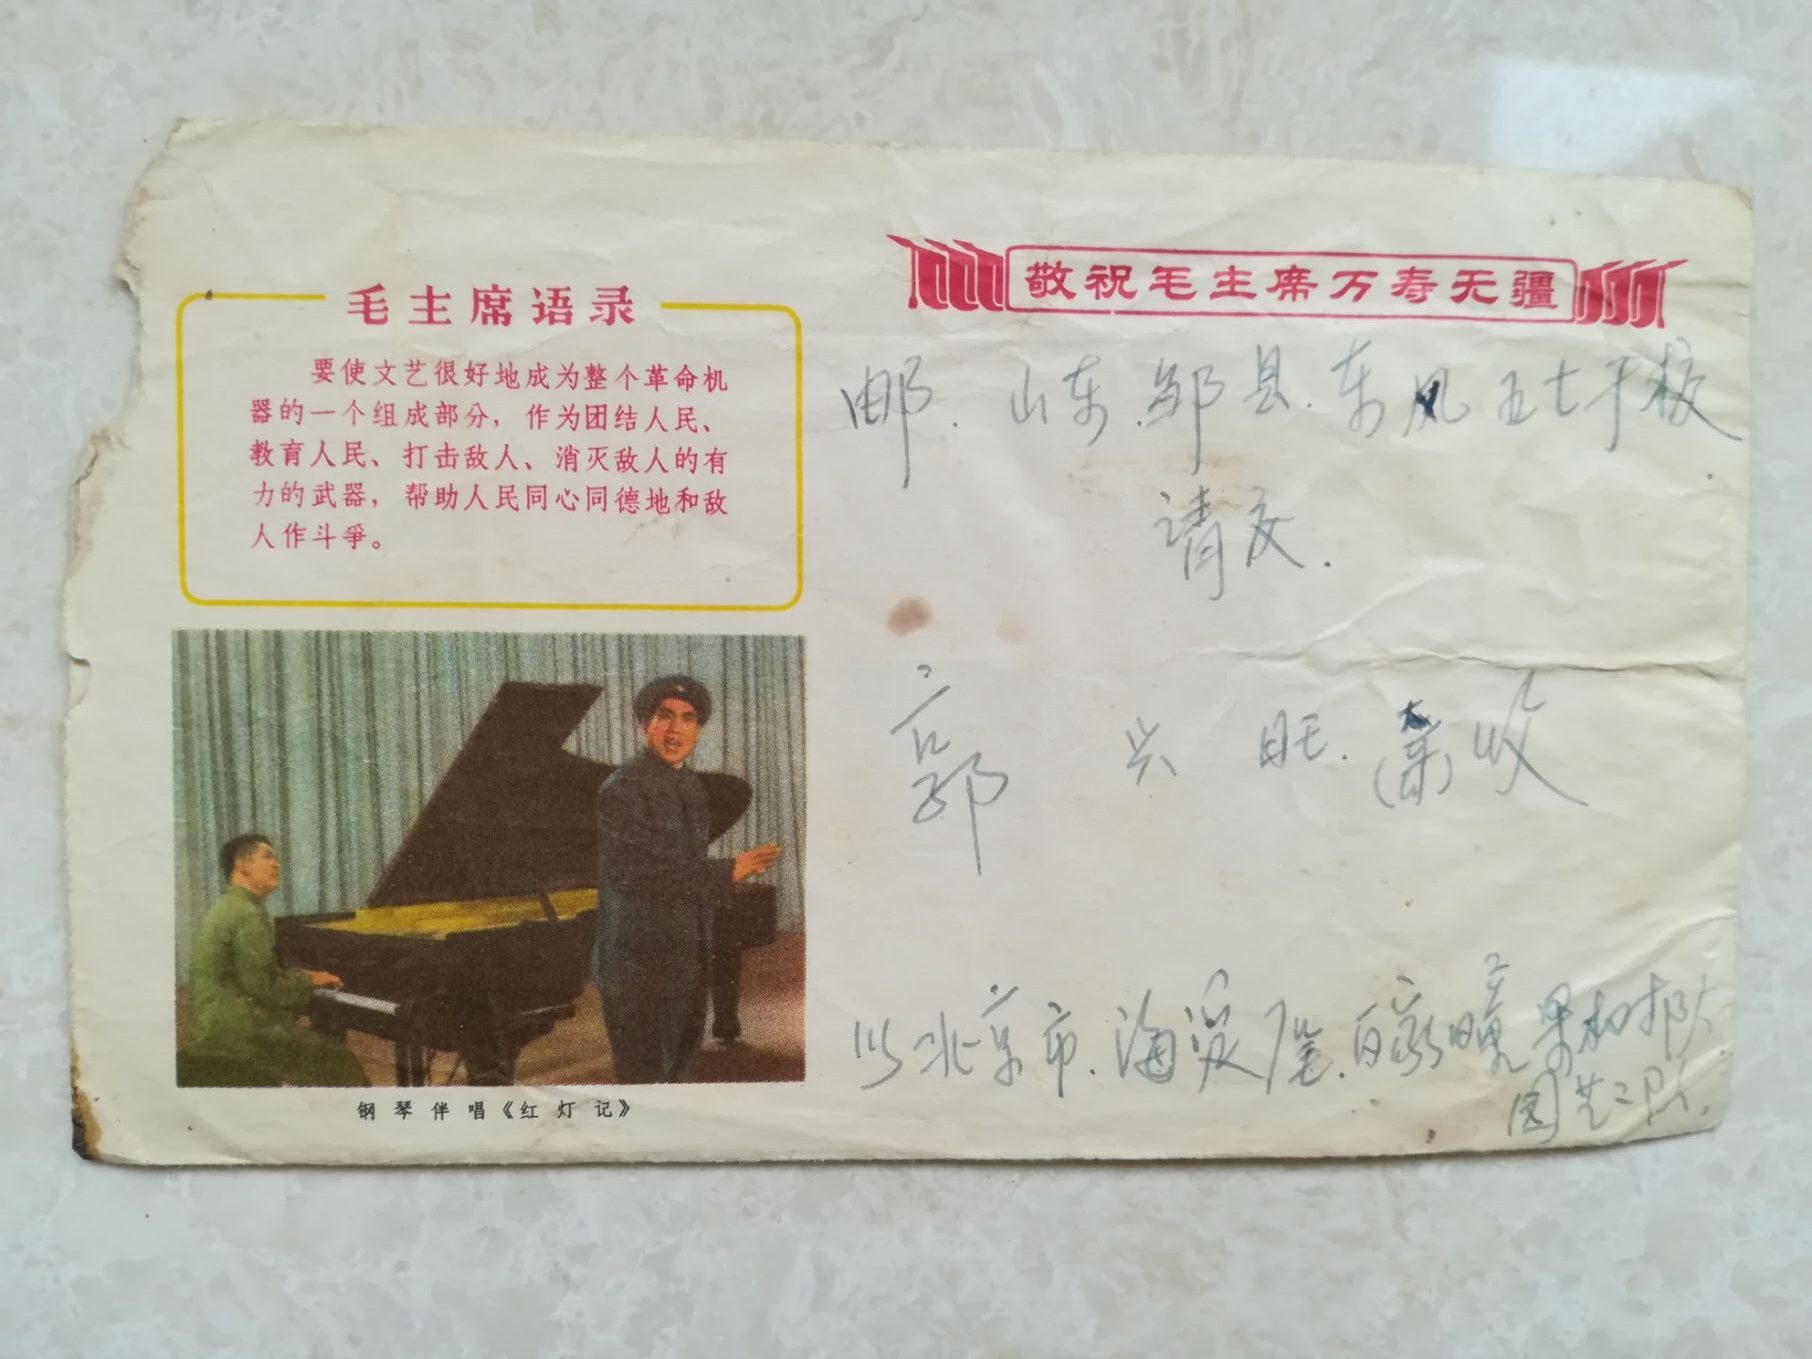 毛主席语录
要使文艺很好地成为整个革命机
器的一个组成部分，作为团结人民、
教育人民、打击敌人、消灭敌人的有
力的武器，帮助人民同心同德地和敌
人作斗争。
钢琴伴唱《红灯记》
敬祝毛主席万寿无疆
邮.山东.邹县.东风五七干校
请交.
郭兴旺.收
北京市.海淀区.果树队
园艺二队.